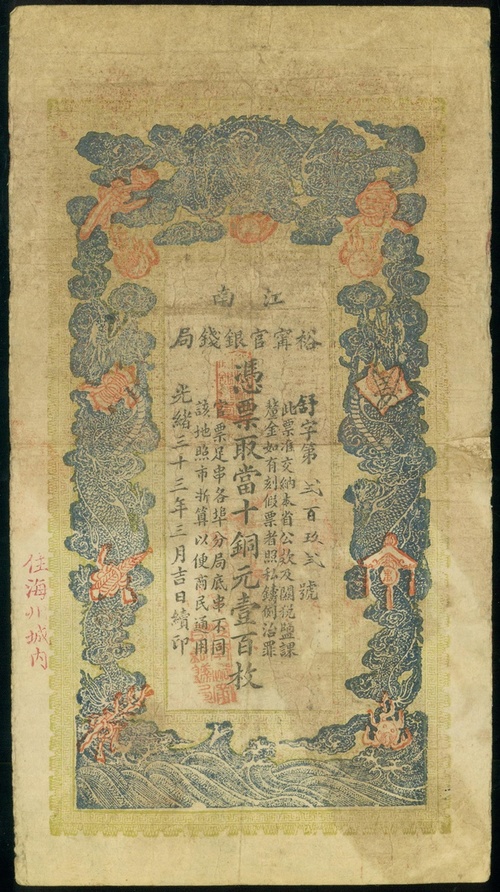 江南
裕甯官銀錢局
舒字第弍百玖弍號
此票准交納本省公款及關税鹽課
釐金如有刻假票者照私鑄例治罪
憑票取當十銅元壹百枚
官票足串各埠分局底串不同
該地照市折算以便商民通用
光緒三十三年三月吉日續印
住海州城内